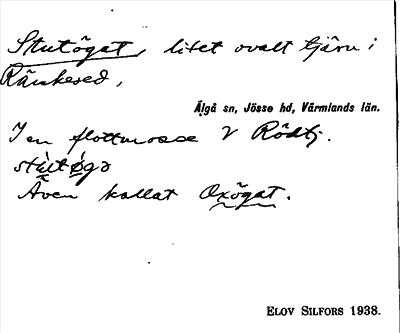 Stutögat, litet ovalt tjärn i
Ränkesed,
Älgå sn, Jösse hd, Värmlands län.
I en flottmosse V Rödtj.
stùtø̀gə
Även kallat Oxögat.
ELOV SILFORS 1938.